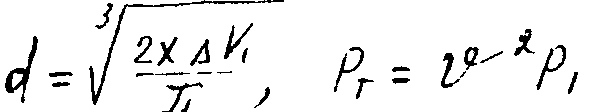 d = ∛(2x Δ V₁ / T₁), P_T = ϑ² P₁